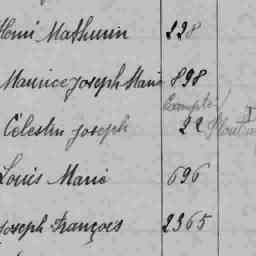 Henri Mathurin 228
Maurice Joseph Marie 898
Exempté
Célestin Joseph 22
Louis Marie 696
Joseph François 2365